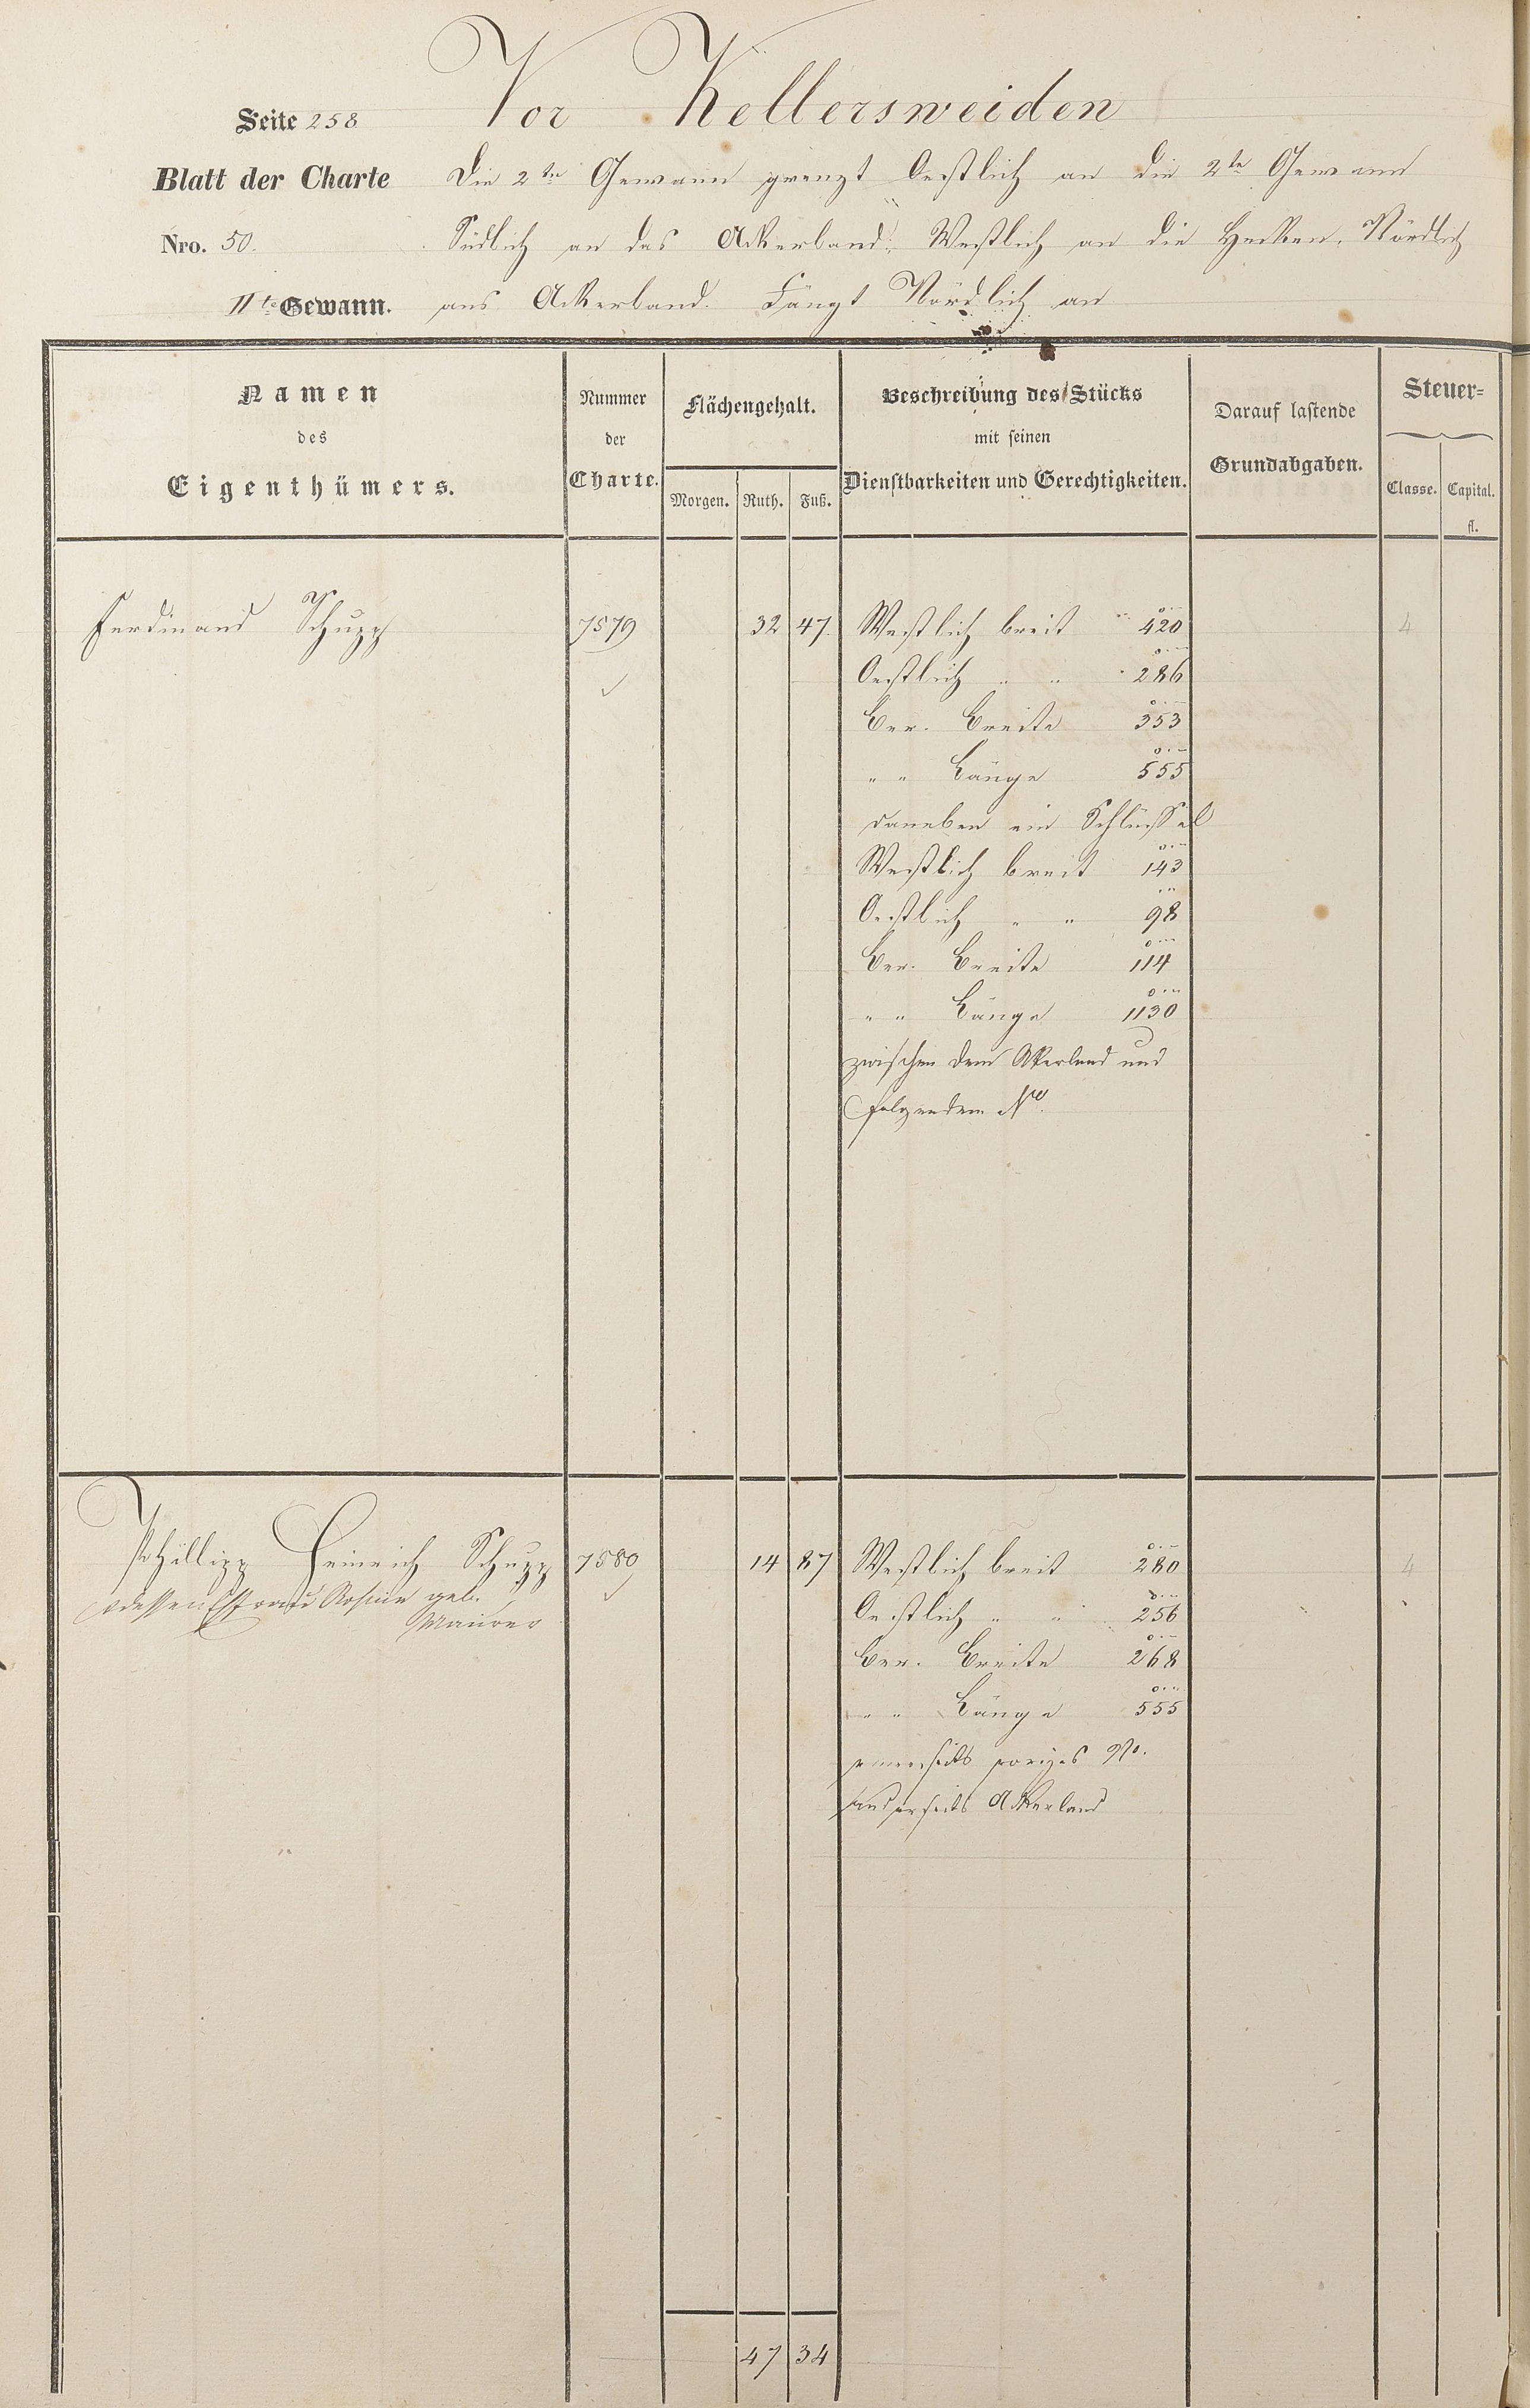 Vor Kellersweiden
Seite 258
Blatt der Charte Die 2te Gewann grenzt Oestlich an die 2te Gewann
Nro. 50. Südlich an das Ackerland, Westlich an die Hecken, Nördlich
IIte Gewann. ans Ackerland. Fängt Nördlich an
Namen
des
Eigenthümers.
Nummer
der
Charte.
Flächengehalt.
Morgen. Ruth. Fuß.
Beschreibung des Stücks
mit seinen
Dienstbarkeiten und Gerechtigkeiten.
Darauf lastende
Grundabgaben.
Steuer=
Classe. Capital.
fl.
Ferdinand Schupp 7579 32 47 Westlich breit 420 4
Oestlich " " 286
Ber. Breite 353
" " Länge 555
daneben ein Schlüssel
Westlich breit 143
Oestlich " " 98
Ber. Breite 114
" " Länge 1130
zwischen dem Ackerland und
folgendem No.
Phillipp Heinrich Schupp 7580 14 87 Westlich breit 280 4
dessen Ehefrau Rosine geb.
Maurer
Oestlich " " 256
Ber. Breite 268
" " Länge 555
einerseits voriges No.
anderseits Ackerland
47 34